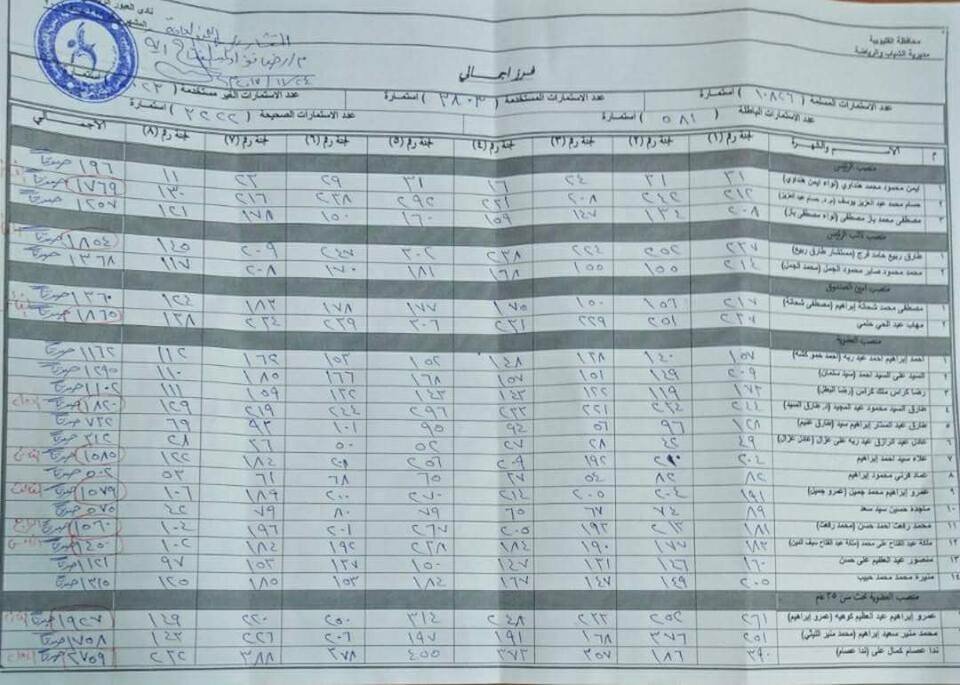 نادى العبور
محافظة القليوبية
مديرية الشباب والرياضة
فرز اجمالى
عدد الاستمارات المسلمة ( ١٠٨٢٦ ) استمارة عدد الاستمارات المستخدمة ( ٣٨٠٣ ) استمارة عدد الاستمارات الغير مستخدمة
عدد الاستمارات الباطلة ( ٥٨١ ) استمارة عدد الاستمارات الصحيحة ( ٣٢٢٢ ) استمارة
م الاسم والشهرة لجنة رقم (١) لجنة رقم (٢) لجنة رقم (٣) لجنة رقم (٤) لجنة رقم (٥) لجنة رقم (٦) لجنة رقم (٧) لجنة رقم (٨) الاجمالي
منصب الرئيس
١ ايمن محمود محمد هنداوي (لواء ايمن هنداوي) ٣١ ٣١ ٢٤ ١٦ ٣١ ٢٩ ٢٣ ١١ ١٩٦ صوتا
٢ حسام محمد عبد العزيز يوسف (م.د. حسام عبد العزيز) ٢١٢ ٢٤٢ ٢٠٨ ٢٢١ ٢٩٢ ٢٣٨ ٢١٦ ١٣٠ ١٧٦٩ صوتا
٣ مصطفى محمد باز مصطفى (لواء مصطفى باز) ٢٠٨ ١٣٤ ١٤٧ ١٥٩ ١٦٠ ١٥٠ ١٧٨ ١٢١ ١٢٥٧ صوتا
منصب نائب الرئيس
١ طارق ربيع حامد فرج (مستشار طارق ربيع) ٢٢٧ ٢٥٢ ٢٢٤ ٢٣٨ ٣٠٢ ٢٤٧ ٢٠٩ ١٤٥ ١٨٥٤ صوتا
٢ محمد محمود صابر محمود الجمل (محمد الجمل) ٢١٤ ١٥٥ ١٥٥ ١٦٨ ١٨١ ١٧٠ ٢٠٨ ١١٧ ١٣٦٨ صوتا
منصب امين الصندوق
١ مصطفى محمد شحاتة إبراهيم (مصطفى شحاتة) ٢١٧ ١٥٦ ١٥٠ ١٧٥ ١٧٧ ١٧٨ ١٨٣ ١٢٤ ١٣٦٠ صوتا
٢ مهاب عبد الحي حلمي ٢٢٧ ٢٥١ ٢٢٩ ٢٣١ ٣٠٦ ٢٣٩ ٢٣٤ ١٣٨ ١٨٦٥ صوتا
منصب العضوية
١ احمد إبراهيم احمد عبد ربه (احمد حمو كشه) ١٥٧ ١٤٠ ١٣٨ ١٤٨ ١٥٢ ١٥٣ ١٦٢ ١١٢ ١١٦٢ صوتا
٢ السيد على السيد احمد (سيد سلمان) ٢٠٩ ١٤٩ ١٥١ ١٥٧ ١٦٨ ١٦٦ ١٨٥ ١١٠ ١٢٩٥ صوتا
٣ رضا كراس ملك كراس (رضا البطل) ١٧٣ ١١٩ ١٢٢ ١٤٣ ١٤٣ ١٣٢ ١٥٩ ١١١ ١١٠٢ صوتا
٤ طارق السيد محمود عبد المجيد (د. طارق السيد) ٢٤٤ ٢٣٤ ٢٢١ ٢٣٣ ٢٩٦ ٢٤٤ ٢١٩ ١٢٩ ١٨٢٠ صوتا
٥ طارق عبد الستار إبراهيم سيد (طارق غنيم) ١٢٨ ٩٦ ٥٦ ٩٤ ٩٥ ١٠١ ٩٣ ٦٩ ٧٣٢ صوتا
٦ عادل عبد الرازق عبد ربه على غزال (عادل غزال) ٤٩ ٤٤ ٢٨ ٢٧ ٥٢ ٥٠ ٣٦ ٢٨ ٣١٤ صوتا
٧ علاء سيد احمد إبراهيم ٢٠٤ ١٩٢ ٢٠٩ ٢٥٦ ١٨٤ ١٢٢ ١٥٨٥ صوتا
٨ عماد قرني محمود إبراهيم ٨٢ ٨٢ ٥٤ ٢٧ ٦٥ ٦٨ ٦١ ٥٣ ٥٠٢ صوتا
٩ عمرو إبراهيم محمد جميل (عمرو جميل) ١٩١ ٢٠٤ ٢٠٥ ٢١٤ ٢٧٠ ٢٠٠ ١٨٩ ١٠٦ ١٥٧٩ صوتا
١٠ ماجدة حسين سيد سعد ٨٩ ٧٤ ٦٧ ٦٥ ٧٩ ٨٠ ٧٩ ٤٢ ٥٧٥ صوتا
١١ محمد رفعت احمد حسن (محمد رفعت) ١٨١ ٢١٣ ١٩٣ ٢٠٥ ٢٦٧ ٢٠١ ١٩٦ ١٠٤ ١٥٦٠ صوتا
١٢ ملكة عبد الفتاح على محمد (ملكة عبد الفتاح سيف الدين) ١٨٣ ١٧٧ ١٩٠ ١٨٤ ٢٣٨ ١٩٢ ١٨٤ ١٠٢ ١٤٥٠ صوتا
١٣ منصور عبد العظيم على حسن ١٦٠ ١٤٦ ١٣١ ١٤٧ ١٥٠ ١٣٧ ١٥٣ ٩٧ ١١٢١ صوتا
١٤ منيرة محمد محمد حبيب ٢٠٥ ١٤٩ ١٤٧ ١٦٧ ١٨٤ ١٥٣ ١٨٥ ١٢٥ ١٣١٥ صوتا
منصب العضوية تحت سن ٣٥ عام
عمرو إبراهيم عبد العظيم كوهيه (عمرو إبراهيم) ٢٦١ ٢٥٢ ٢٣٣ ٢٤٨ ٣١٤ ٢٥٠ ٢٢٠ ١٤٩ ١٩٢٧ صوتا
محمد منير سعيد إبراهيم (محمد منير الليثي) ٢٥١ ٣٧٦ ١٦٨ ١٩١ ١٩٧ ٢٠٦ ٢٢٦ ١٤٣ ١٧٥٨ صوتا
ندا عصام كمال على (ندا عصام) ٣٩٠ ١٨٦ ٣٥٧ ٣٧٢ ٤٥٥ ٣٧٨ ٣٨٨ ٢٣٢ ٢٧٥٩ صوتا